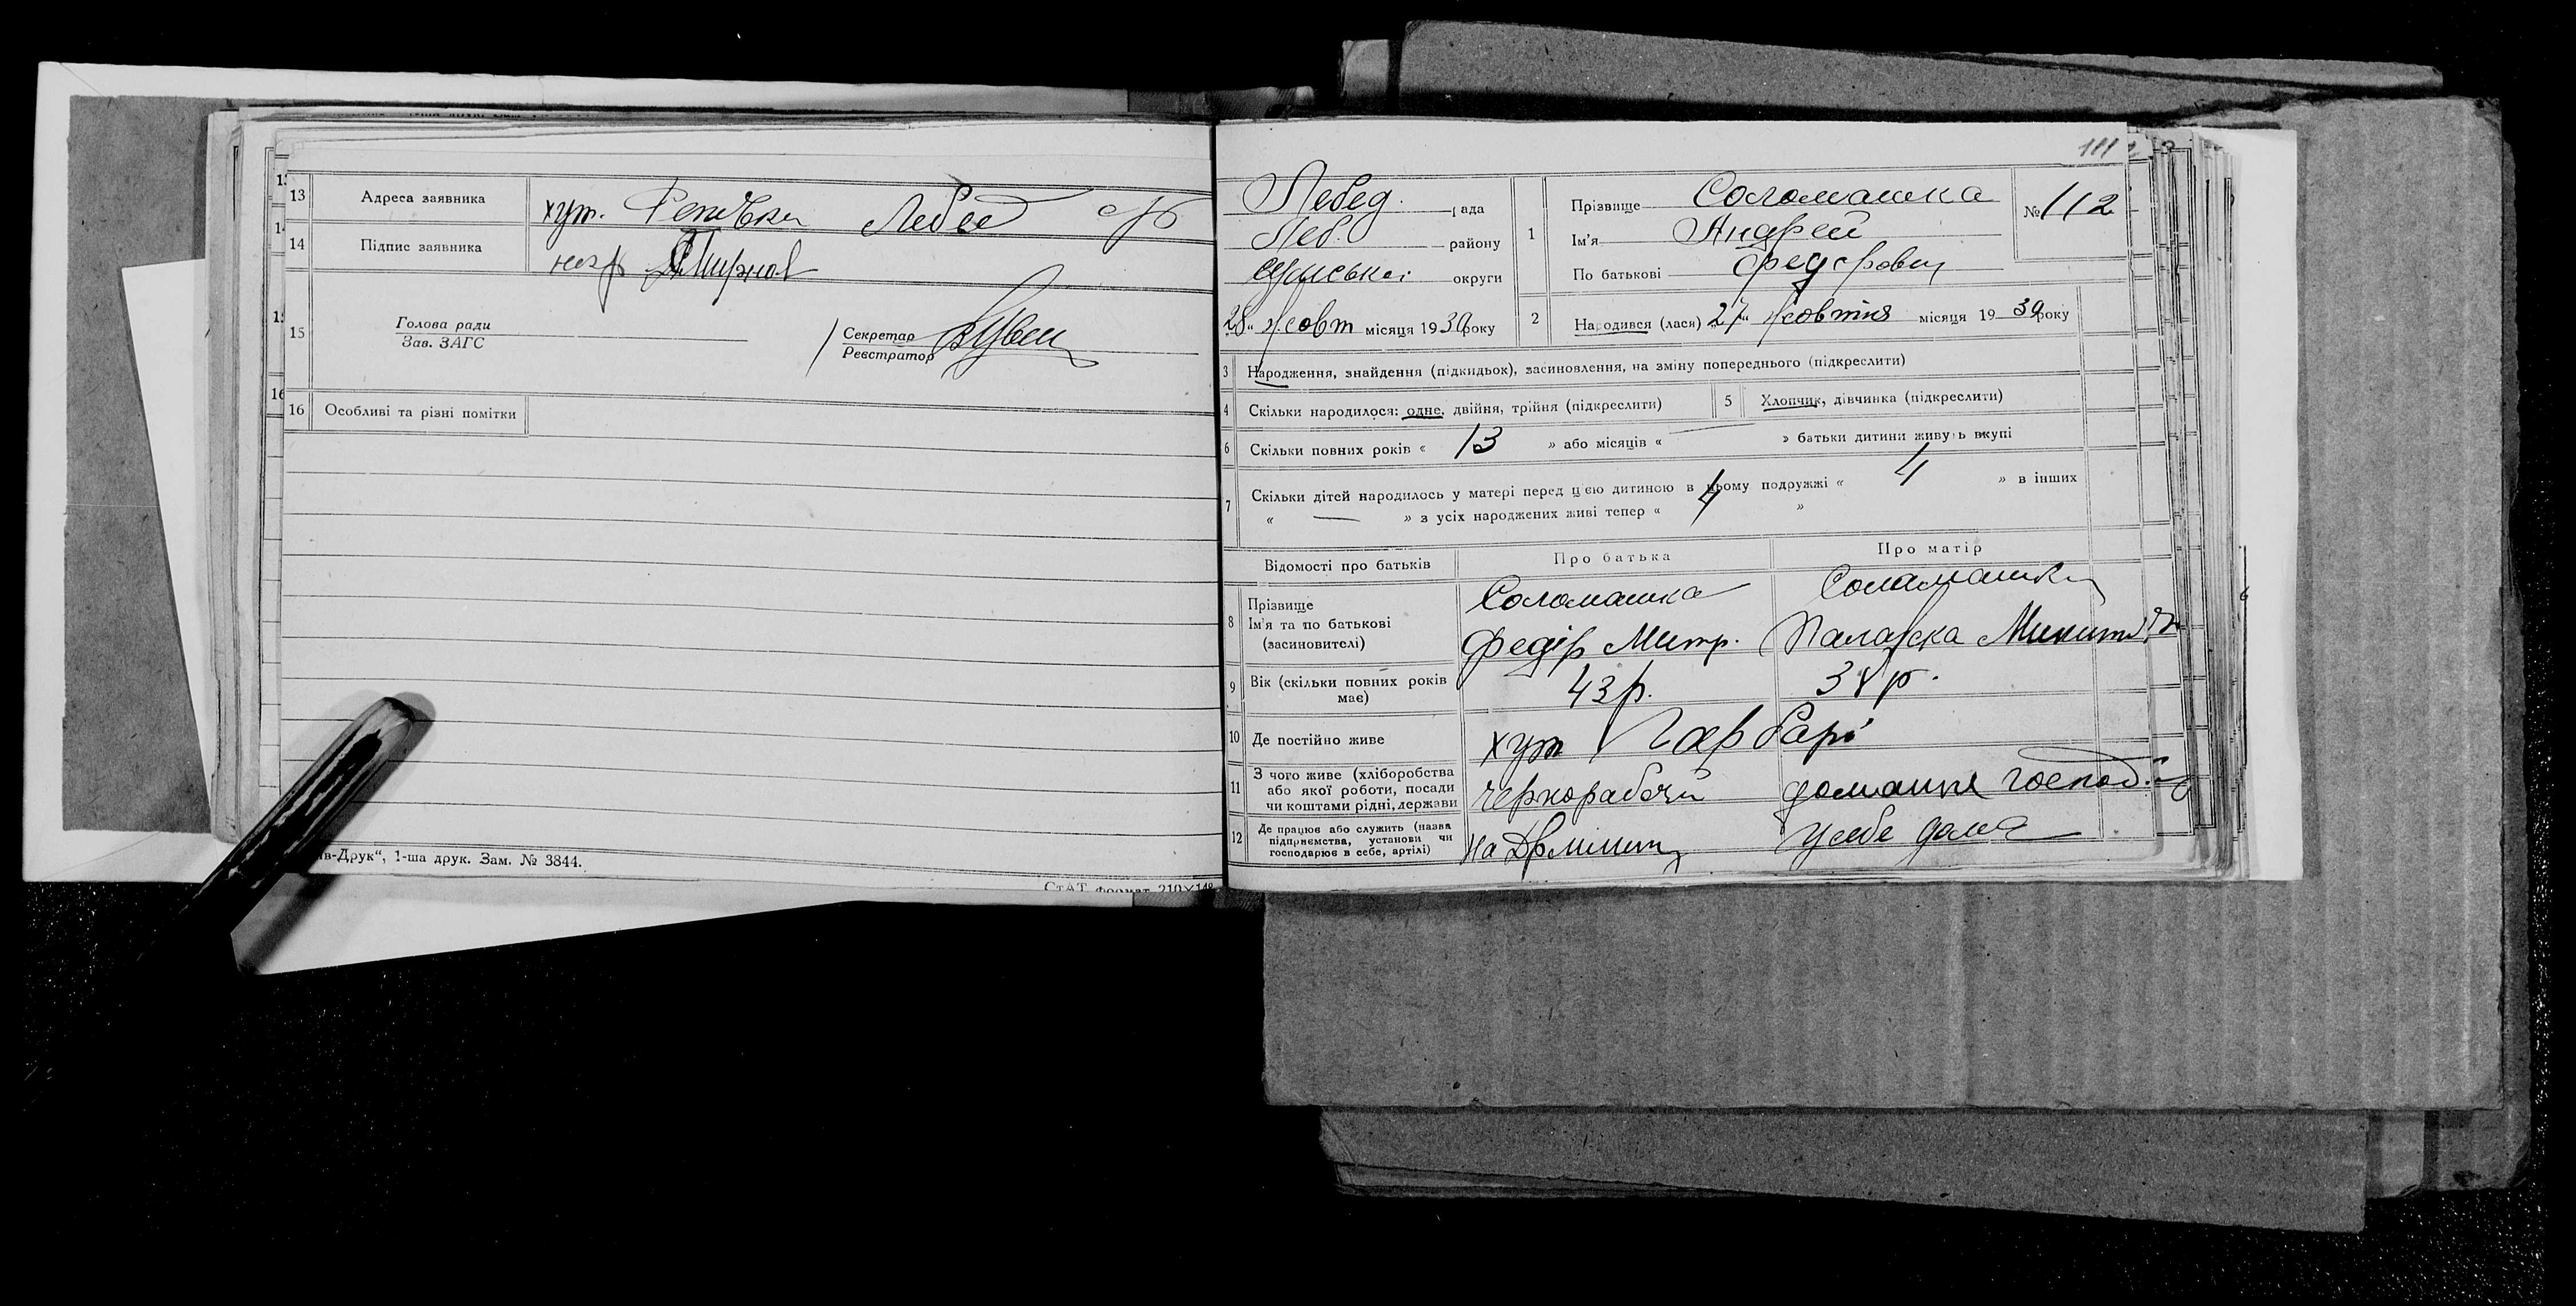 13 Адреса заявника хут. Лебед
14 Підпис заявника
15 Голова ради
Зав. ЗАГС
Секретар
Реєстратор
16 Особливі та різні помітки
в-Друк“, 1-ша друк. Зам. № 3844.
СтАТ формат 210×148
111
Лебед. рада
Леб. району
Сумської округи
28 „ жовт місяця 1930 року
1 Прізвище Соломашка
Ім'я Андрей
По батькові Федорович
№ 112
2 Народився (лася) „27“ жовтня місяця 1930 року
3 Народження, знайдення (підкидьок), засиновлення, на зміну попереднього (підкреслити)
4 Скільки народилося: одне, двійня, трійня (підкреслити)
5 Хлопчик, дівчинка (підкреслити)
6 Скільки повних років « 13 » або місяців « — » батьки дитини живуть вкупі
7 Скільки дітей народилось у матері перед цією дитиною в цьому подружжі « 4 » в інших
« — » з усіх народжених живі тепер « 4 »
Відомості про батьків Про батька Про матір
8 Прізвище Соломашка Соломашка
Ім'я та по батькові
(засиновителі) Федір Митр. Палажка
9 Вік (скільки повних років має) 43 р. 38 р.
10 Де постійно живе хут Гарбарі
11 З чого живе (хліборобства або якої роботи, посади чи коштами рідні, держави чернорабочи домашнє господ.
12 Де працює або служить (назва підприємства, установи чи господарює в себе, артілі) на у себе дома